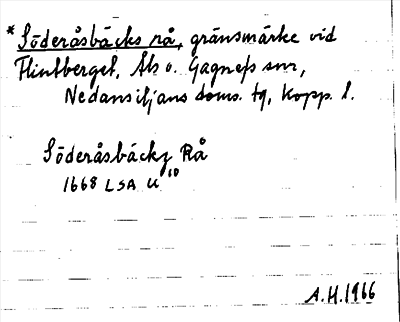 * Söderåsbäcks rå, gränsmärke vid
Flintberget, Åls o. Gagnefs snr,
Nedansiljans doms. tg, Kopp. l.
Söderåsbäckz Rå
1668 LSA U 10
A.H. 1966